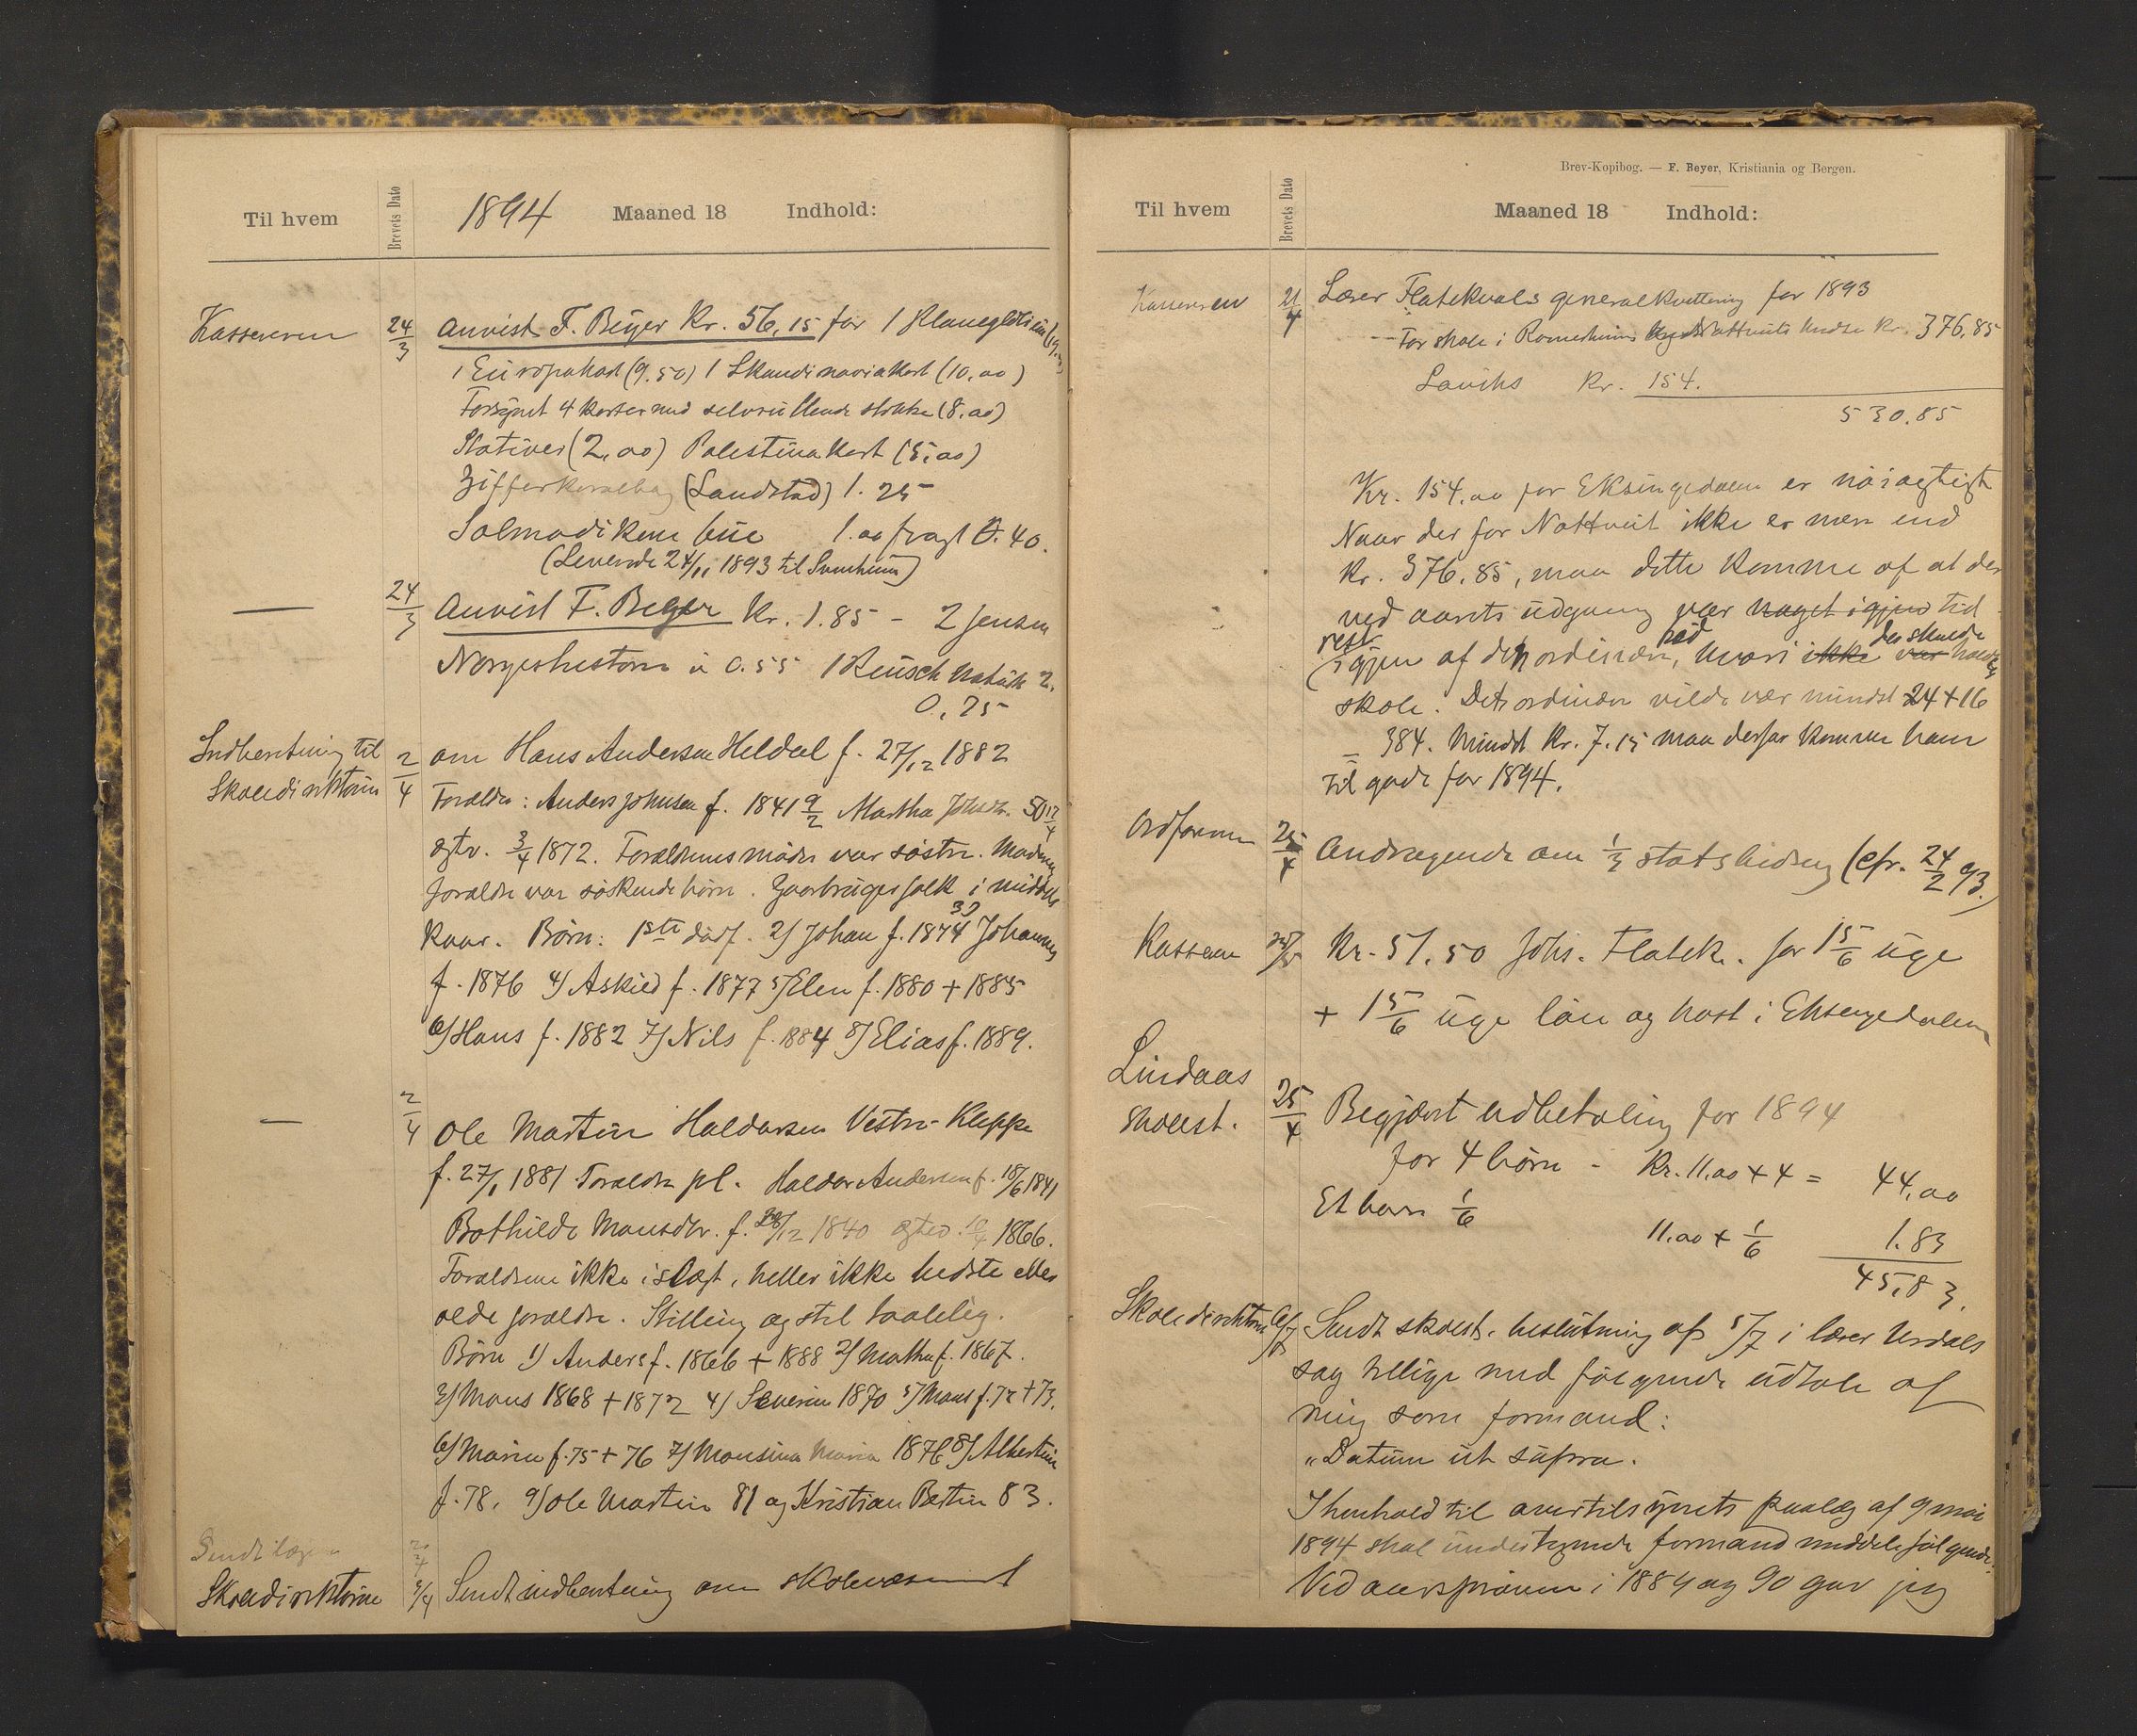 Til hvem Brevets Dato 1894 Maaned 18 Indhold:
Kassereren 24/3 Anvist F. Beyer Kr. 56,15 for 1
1 Europakart (9.50) 1 Skandinaviakart (10,00)
Forsynet 4 karter med selvrullende stokke (8,00)
Stativer (2,00) Palestinakart (5,00)
Zifferkoralbog (Landstad) 1.25
Salmodikon bue 1.00 fragt 0.40.
(Leverede 24/11 1893 til)
— 24/3 Anvist F. Beyer Kr. 1.85 - 2 Jensen
Norgeshistorie à 0.55 1 Reusch
0,75
Indberetning til 2/4 om Hans Andersen Heldal f. 27/12 1882
Skoledirektøren Forældre: Anders Johnsen f. 1841 9/2 Martha
ægtv. 3/4 1872. Forældrenes mødre var søstre. Moderens
forældre var søskendebørn. Gaarbrugerfolk i middels
kaar. Børn: 1ste dødf. 2) Johan f. 1874 3) Johannes
f. 1876 4) Askild f. 1877 5) Elen f. 1880 + 1885
6) Hans f. 1882 7) Nils f. 1884 8) Elias f. 1889.
— 2/4 Ole Martin Haldorsen Vestre-Kleppe
f. 27/1 1881 Forældre pl. Haldor Andersen f. 18/6 1841
Bothilde Monsdtr. f. 28/12 1840 ægtev. 10/4 1866.
Forældrene ikke i slægt, heller ikke bedste eller
olde forældre. Stilling og stel taalelig.
Børn 1) Anders f. 1866 + 1888 2) Martha f. 1867.
3) Mons 1868 + 1872 4) Severin 1870 5) Mons f. 72 + 73.
6) Marie f. 75 + 76 7) Monsina Maria 1876 8) Albertine
f. 78. 9) Ole Martin 81 og Kristian Bertin 83.
Sendt
Skoledirektøren 5/4 Sendt indberetning om skolevæsenet
Brev-Kopibog. — F. Beyer, Kristiania og Bergen.
Til hvem Brevets Dato Maaned 18 Indhold:
Kassereren 21/4 Lærer Flatekvals generalkvittering for 1893
For skole i Kr. 376,85
Laviks Kr. 154.
530.85
Kr. 154,00 for Eksingedalen er nøiagtigt
Naar der for Nattveit ikke er mere end
Kr. 376.85, maa dette komme af at der
ved aarets udgang var noget igjen tid
rest red der skulde
(igjen af den ordinære, hvori ikke var holdes
skole. Det ordinære vilde være mindst 24 + 16
= 384. Mindst Kr. 7.15 maa derfor komme ham
til gode for 1894.
Ordføreren 25/4 Andragende om 1/3 statsbidrag (cfr. 24/2 93.)
Kasseren Kr. 51.50 Johs. Flatek. for 1 5/6 uge
+ 1 5/6 uge løn og kost i Eksingedalen
Lindaas
skolest. 25/4 Begjært udbetaling for 1894
for 4 børn - Kr. 11,00 + 4 = 44,00
Et barn 1/6
11.00 + 1/6 1.83
45,83.
Skoledirektøren 6/7 Sendt skolest. beslutning af 5/7 i lærer Urdals
sag tillige med følgende udtale af
mig som formand:
"Datum ut supra.
I henhold til overtilsynets paalæg af 9 mai
1894 skal undertegnede formand meddele følgende:
Ved aarsprøven i 1889 og 90 gav jeg